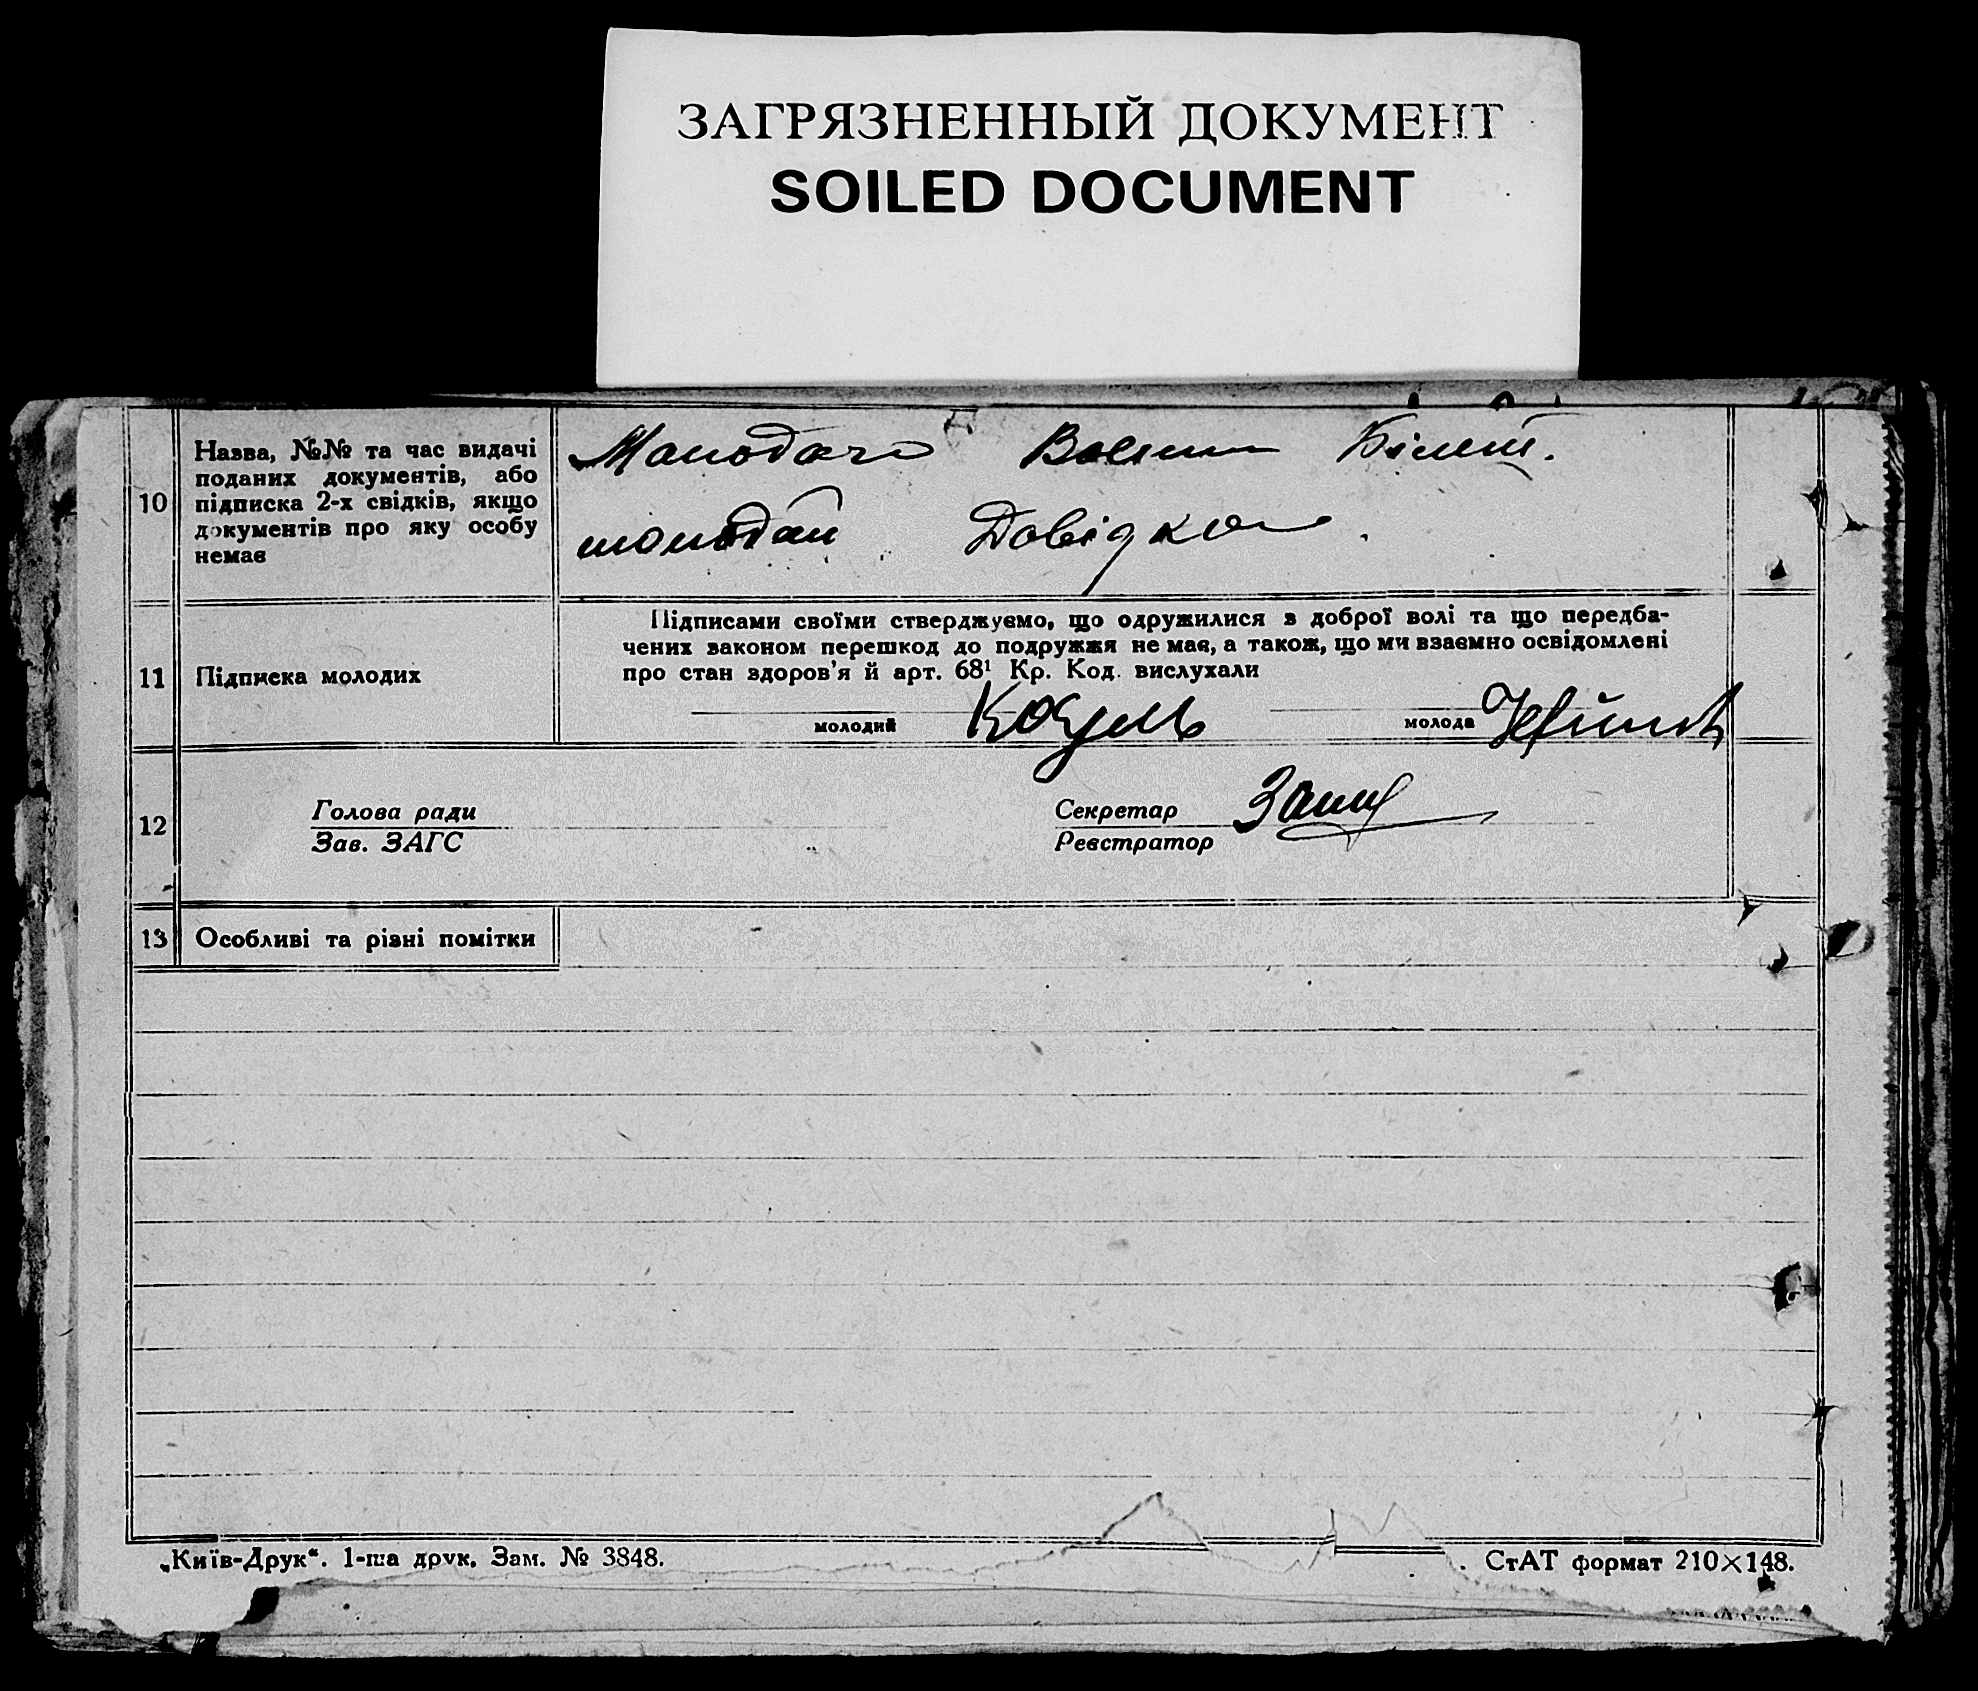 ЗАГРЯЗНЕННЫЙ ДОКУМЕНТ
SOILED DOCUMENT
10
Назва, №№ та час видачі
поданих документів, або
підписка 2-х свідків, якщо
документів про яку особу
немає
Молодого Воєнн Білет.
молодой Довідка.
11
Підписка молодих
Підписами своїми стверджуємо, що одружилися з доброї волі та що передба-
чених законом перешкод до подружжя не має, а також, що ми взаємно освідомлені
про стан здоров'я й арт. 68¹ Кр. Код. вислухали
молодий Козуль молода
12
Голова ради
Зав. ЗАГС
Секретар
Реєстратор
13
Особливі та різні помітки
„Київ-Друк“. 1-ша друк. Зам. № 3848.
СтАТ формат 210×148.